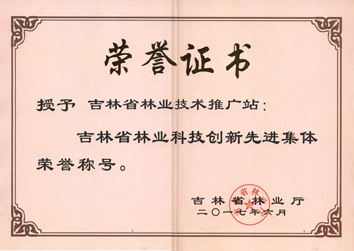 荣誉证书
授予 吉林省林业技术推广站：
吉林省林业科技创新先进集体
荣誉称号。
吉林省林业厅
二〇一七年六月